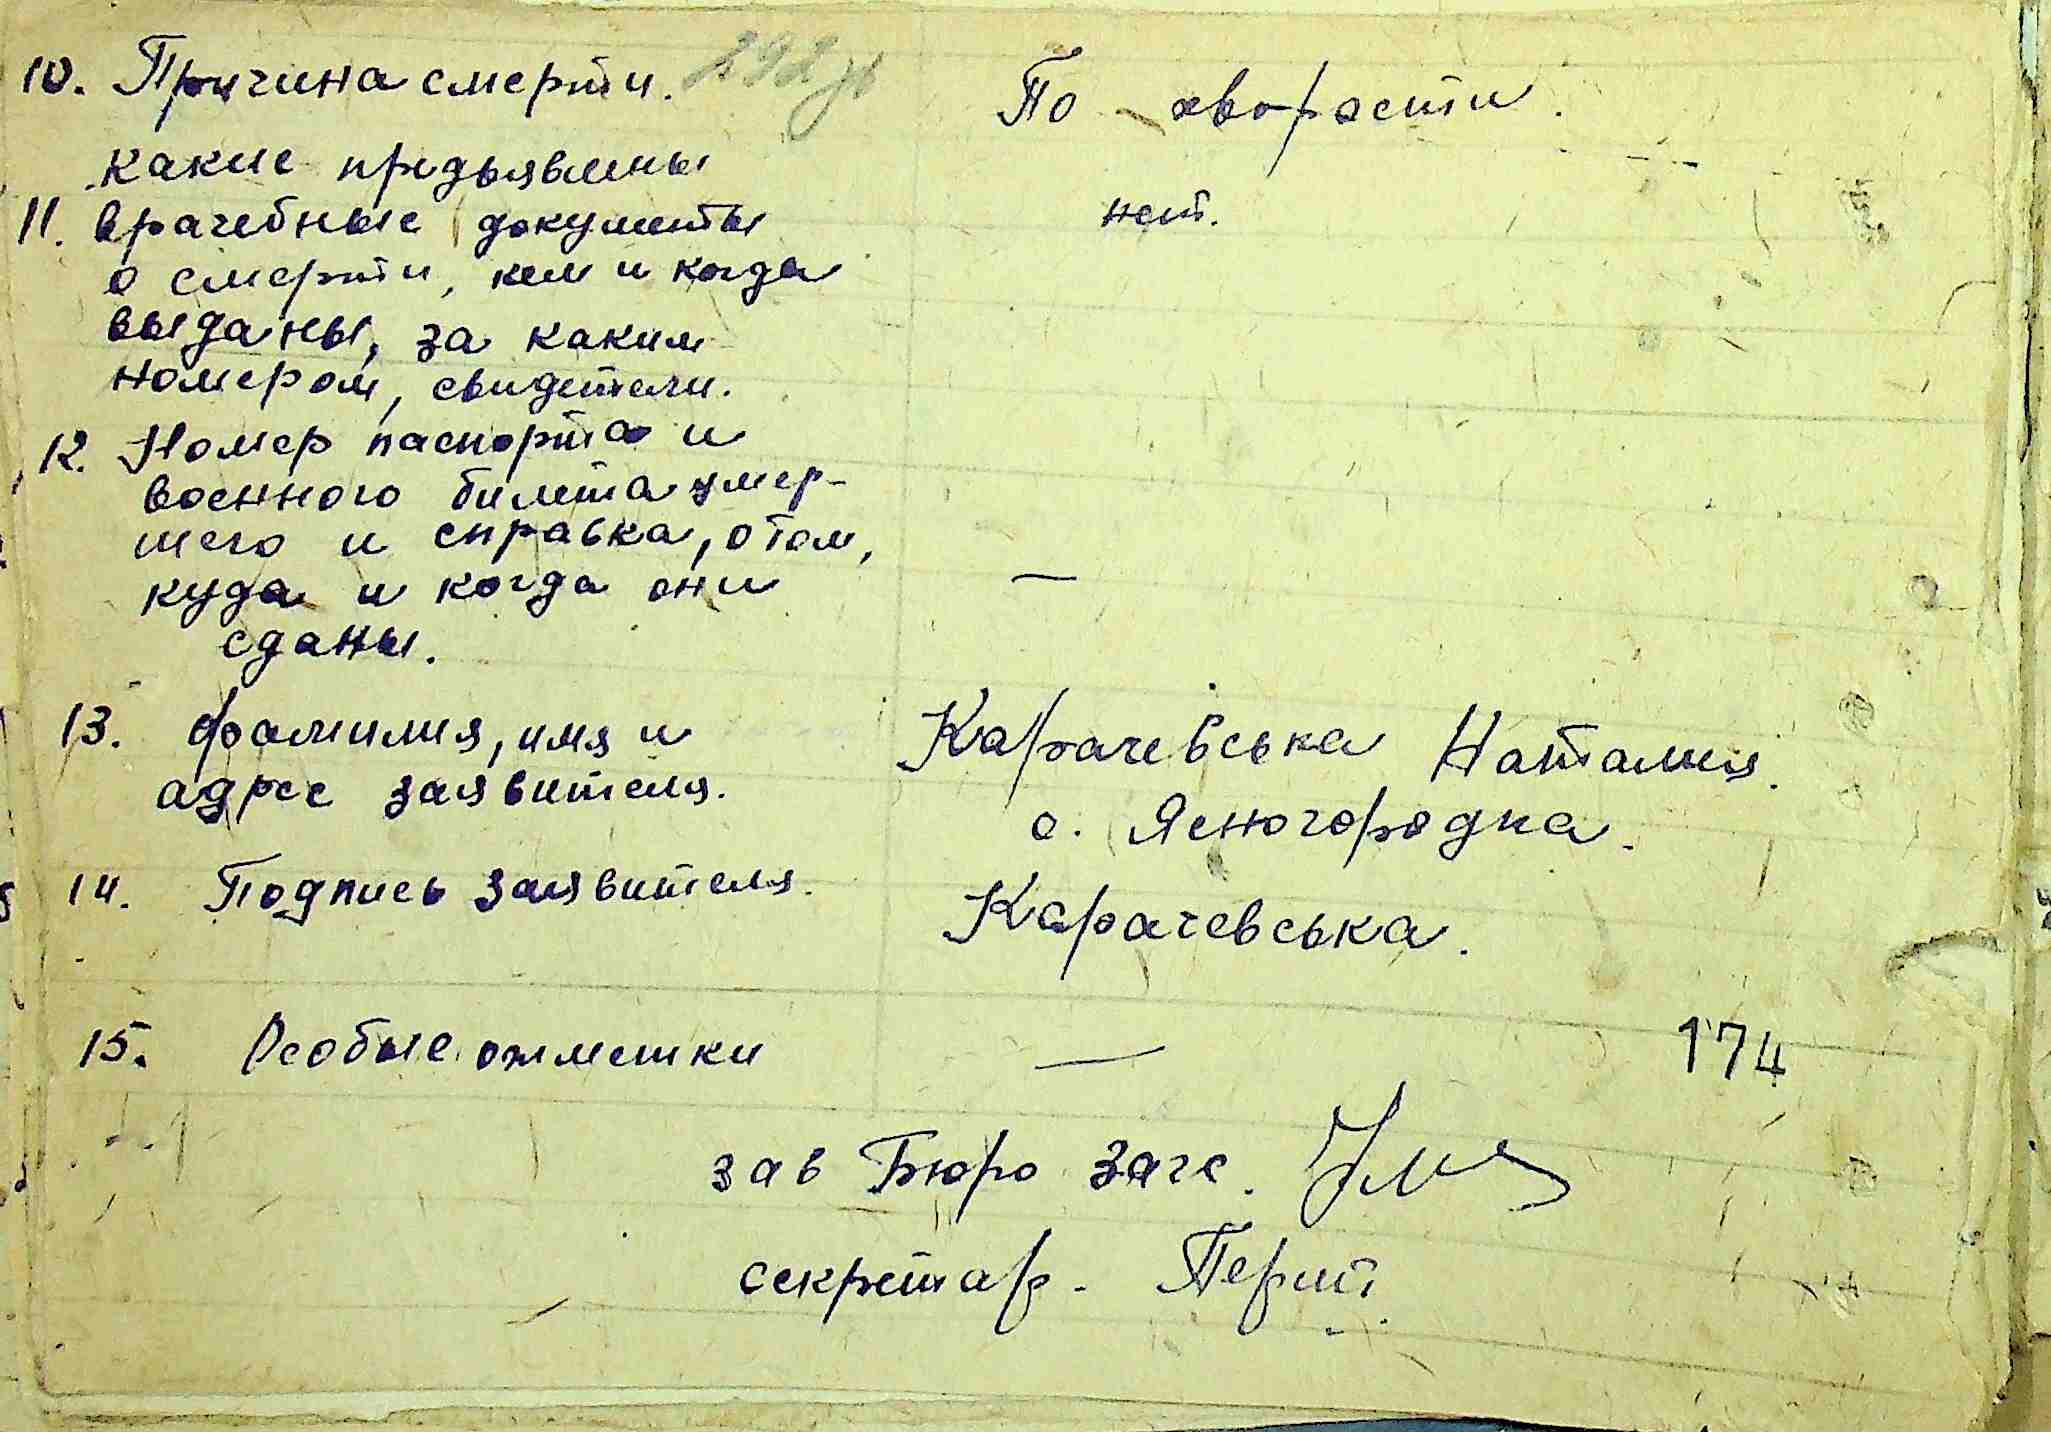 10. Причина смерти. По хворости.
какие предъявлены
11. врачебные документы нет.
о смерти, кем и когда
выданы, за каким
номером, свидетели.
12. Номер паспорта и
военного билета умер-
шего и справка, о том,
куда и когда они —
сданы.
13. фамилия, имя и Карачевська Наталия.
адрес заявителя. с. Ясногородка.
14. Подпись заявителя. Карачевська.
15. Особые отметки — 174
зав Бюро загс.
секретар.